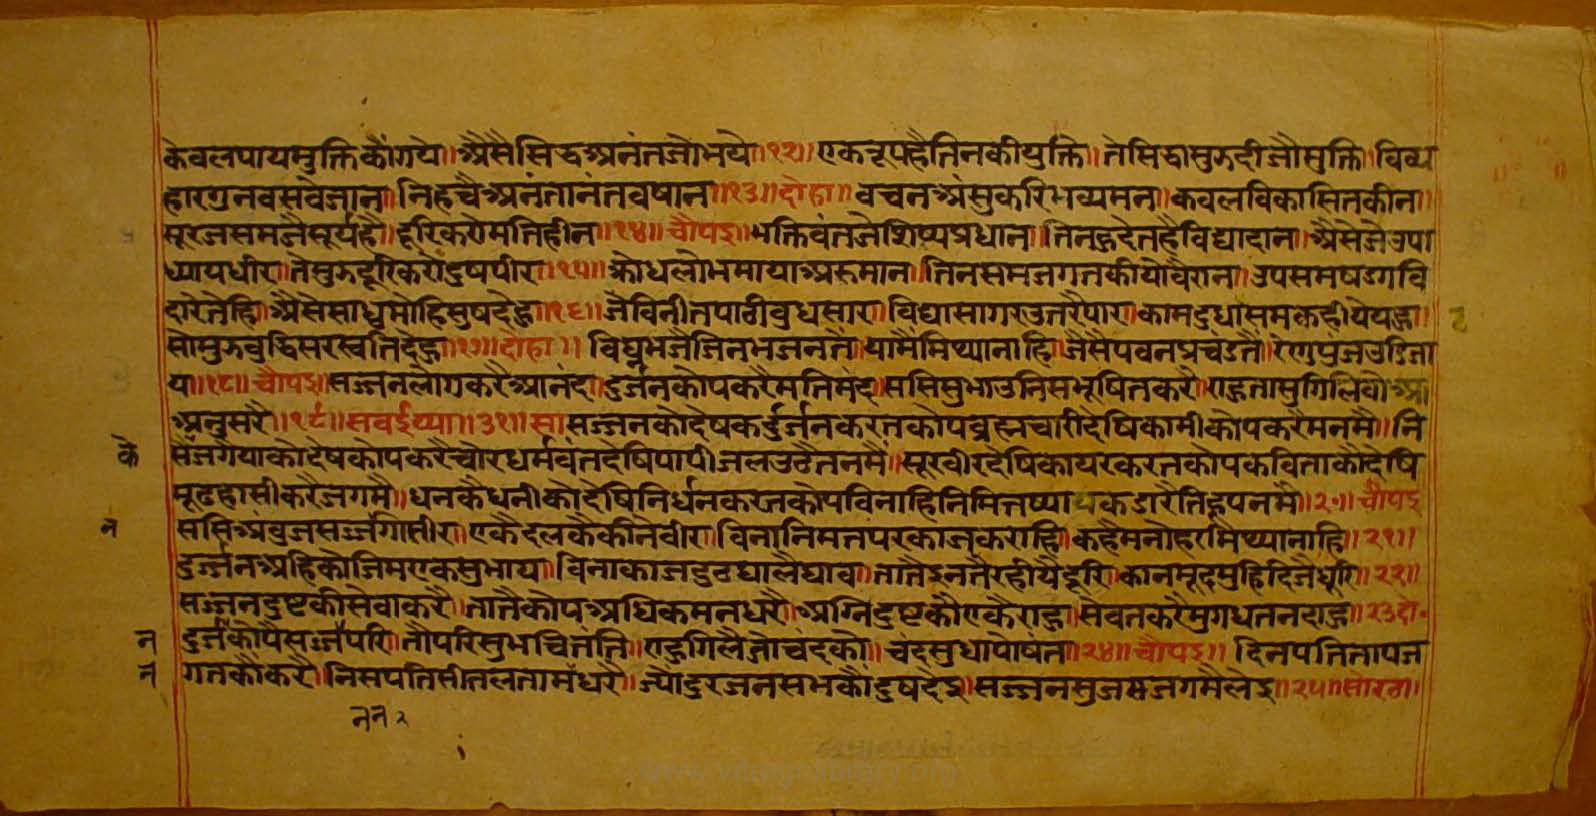 केवलपायमुक्तिकौंगये॥अैसैसिद्धअनंतजोभये॥१२॥एकत्रूपहैतिनकीयुक्ति॥तेसिद्धामुऊदीजौमुक्ति॥विव्य
हारगुनवसवैजान॥निहचैअनंतानंतवषान॥१३॥दोहा॥वचनअंसुकरिभव्यमन॥कवलविकासितकीन॥
सूरजसमजैसूर्यहै॥दूरिकरोमतिहीन॥१४॥चौपइ॥भक्तिवंतजेशिष्यप्रधान॥तिनकुदेतहैविद्यादान॥अैसेजेउपा
ध्यायधीर॥तेमुऊदूरिकरौदुषपीर॥१५॥क्रोधलोभमायाअरुमान॥तिनसमजगतकीयोवैरान॥उपसमषडगवि
दारेतेहि॥अैसेसाधुमोहिसुषदेहु॥१६॥जैविनीतपाठीबुधसार॥विद्यासागरउतरैपार॥कामदुधासमकहीयेयेहु॥
सोमुऊबुद्धिसरस्वतिदेहु॥१७॥दोहा॥विघ्नभजैजिनभजनतै॥यामैमिथ्यानाहि॥जैसैपवनप्रचंडतै॥रेणुपुंजउडिजा
य॥१८॥चौपइ॥सज्जनलोगकरैआनंद॥दुर्जनकोपकरैमतिमंद॥ससिसुभाउनिसभूषितकरै॥राहुतासुगिलिवो
अनुसरै॥१९॥सवईय्या॥३१॥सासज्जनकोदेषकर्दुर्जनकरतकोपब्रह्मचारीदेषिकामीकोपकरैमनमै॥नि
सजगैयाकोदेषकोपकरैचोरधर्मवंतदेषिपापीजलउठैतनमै॥सूरवीरदेषिकायरकरतकोपकविताकौदेषि
मूढहासीकरैजगमै॥धनकैधनीकोदेषिनिर्धनकरतकोपविनाहिनिमित्त
ससिअंबुजसर्ज्जगासीर॥एकैदलकैकीनेवीर॥विनानिमतपरकाजकराहि॥कहैमनोहरमैथ्यानाहि॥२१॥
दुर्ज्जनअहिकोजिमएकसुभाय॥विनाकाजदुठघालैघाव॥तातैइनतैरहीयैदूरि॥कानमूदमुहिदिजैधूरि॥२२॥
सज्जनदुष्टकीसेवाकरै॥तातैकोपअधिकमनधरै॥अग्निदुष्टकौएकैराहु॥सेवतकरैमुगधतनदाहु॥२३दो॰
दुर्जकोपैसर्ज्जपरि॥तौपरिसुभचितनेति॥राहुगिलैजोचंदकौ॥चंदसुधापोषंत॥२४॥चौपइ॥दिनपतितापज
गतकौकरै॥निसपतिसीतलतामंधरै॥ज्यौंदुरजनसभकौंदुषदेइ॥सज्जनसुजसजगमैलेइ॥२५॥सोरठा॥
के
न
न
न
नन २